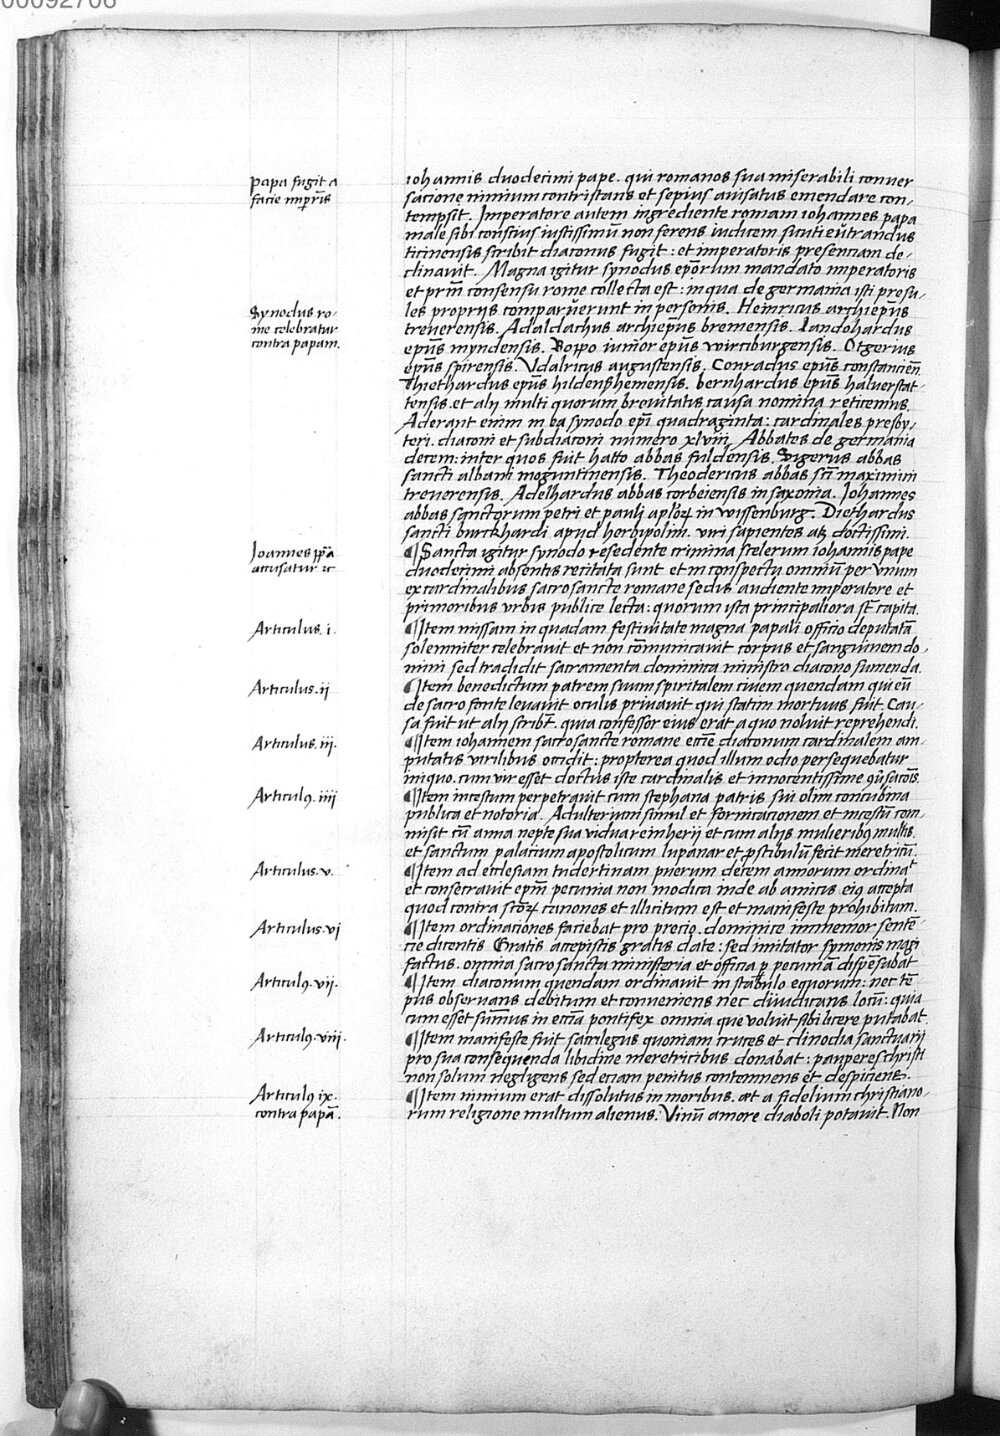 00092706
papa fugit a
facie imp̄r̄is
iohannis duodecimi pape. qui romanos sua miserabili conuer
sacione nimium contristans et sepius auisatus emendare con-
tempsit. Imperatore autem ingrediente romam iohannes papa
male sibi conscius iustissimū non ferens iudicem sicuti eutrandus
ticinensis scribit diaconus fugit: et imperatoris presenciam de-
clinauit. Magna igitur synodus ep̄orum mandato imperatoris
et prm̄ consensu rome collecta est: in qua de germania isti presu-
Synodus ro-
me celebratur
contra papam.
les proprijs comparuerunt in personis. Heinricus archiep̄us
treuerensis. Adaldachus archiep̄us bremensis. Landohardus
ep̄us myndensis. Boppo iunior ep̄us wirciburgensis. Otgerius
ep̄us spirensis. Vdalricus augustensis. Conradus ep̄us constancieñ.
Thiethardus ep̄us hildenßhemensis. bernhardus ep̄us haluerstat-
tensis. et alij multi quorum breuitatis causa nomina reticemus.
Aderant enim in ea synodo ep̄i quadraginta: cardinales presby-
teri. diaconi et subdiaconi numero xlviij. Abbates de germania
decem: inter quos fuit hatto abbas fuldensis. Sigerus abbas
sancti albani moguntinensis. Theodericus abbas sc̄ti maximini
treuerensis. Adelhardus abbas corbeiensis in saxonia. Johannes
abbas sanctorum petri et pauli ap̄loꝝ in wissenburg. Diethardus
sancti burckhardi apud herbipolim. viri sapientes atꝫ doctissimi.
Joannes pp̄a
accusatur ꝛc
¶ Sancta igitur synodo residente crimina scelerum iohannis pape
duodecimi absentis recitata sunt et in conspectu omniū per vnum
ex cardinalibus sacrosancte romane sedis audiente imperatore et
primoribus vrbis publice lecta: quorum ista principaliora st̄ capita.
Articulus. i.
¶ Item missam in quadam festiuitate magna papali officio deputata
solemniter celebrauit et non cōmunicauit corpus et sanguinem do-
mini sed tradidit sacramenta dominica ministro diacono sumenda.
Articulus. ii
¶ Item benedictum patrem suum spiritalem ciuem quendam qui eū
de sacro fonte leuauit oculis priuauit qui statim mortuus fuit. Cau-
sa fuit ut alij scribt̄. quia confessor eius erat a quo noluit reprehendi.
Articulus. iii.
¶ Item iohannem sacrosancte romane ecc̄ie diaconum cardinalem am-
putatis virilibus occidit: propterea quod illum odio persequebatur
iniquo. cum vir esset doctus iste cardinalis et innocentissime
Articulꝰ. iiii
¶ Item incestum perpetrauit cum stephana patris sui olim concubina
publica et notoria. Adulterium simul et fornicacionem et incestū com-
misit cū anna nepte sua vidua reinherij et cum alijs mulieribꝰ multis.
et sanctum palacium apostolicum lupanar et ꝓstibulū fecit meretricū.
Articulus. v.
¶ Item ad ecclesiam tudertinam puerum decem annorum ordinat
et consecrauit ep̄m pecunia non modica inde ab amicis eiꝰ accepta
quod contra sc̄oꝝ canones et illicitum est et manifeste prohibitum.
Articulus. vi
¶ Item ordinaciones faciebat pro precio. dominice immemor sentē-
cie dicentis Gratis accepistis gratis date: sed imitator symonis magi
factus. omnia sacrosancta ministeria et officia ꝑ pecuniā dispēsabat
Articulꝰ. vij.
¶ Item diaconum quendam ordinauit in stabulo equorum: nec tē-
pus obseruans debitum et conueniens nec diiudicans locū: quia
cum esset sūmus in ecc̄ia pontifex omnia que voluit sibi licere putabat.
Articulꝰ. viii.
¶ Item manifeste fuit sacrilegus quoniam cruces et clinodia sanctuarij
pro sua consequenda libidine meretricibus donabat: pauperes christi
non solum negligens sed eciam penitus contemnens et despiciens.
Articulꝰ ix.
contra papā.
¶ Item nimium erat dissolutus in moribus. æt a fidelium christiano-
rum religione multum alienus. Vinū amore diaboli potauit. Non